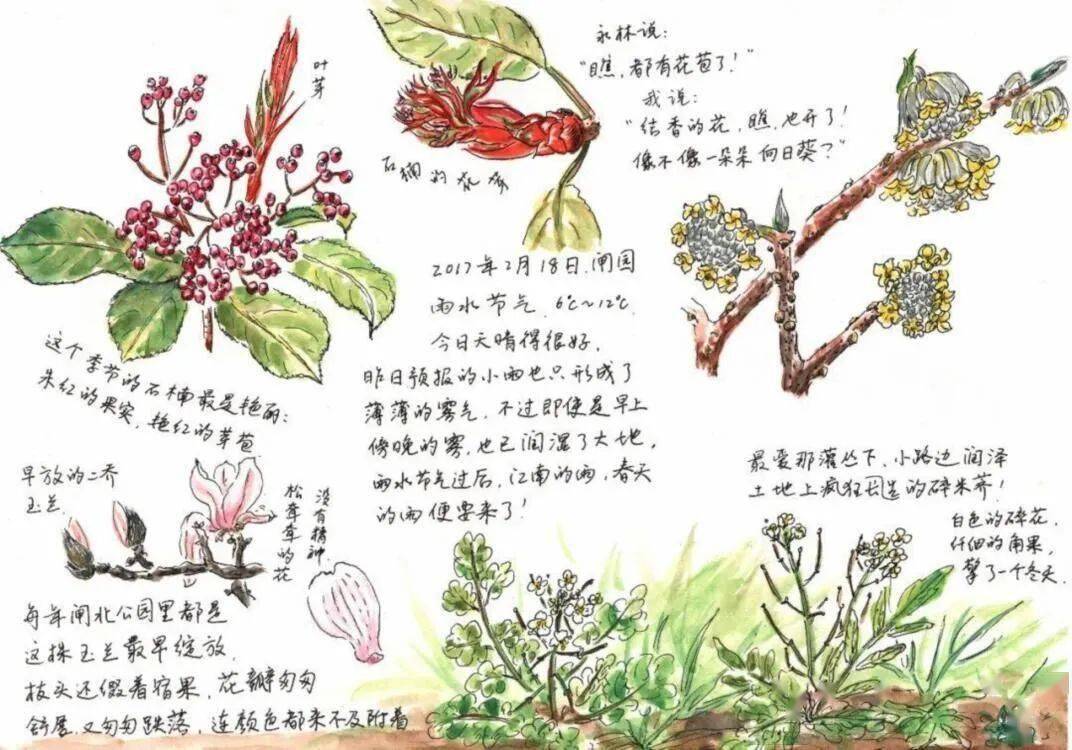 叶芽
永林说：
“瞧，都有花苞了！”
我说：
“结香的花，瞧，也开了！
像不像一朵朵向日葵？”
石楠的花序
2017年2月18日，闸园
雨水节气，6℃~12℃
今日天晴得很好，
昨日预报的小雨也只形成了
薄薄的雾气，不过即使是早上
傍晚的雾，也已润湿了大地，
雨水节气过后，江南的雨，春天
的雨便要来了！
这个季节的石楠最是艳丽：
朱红的果实，艳红的芽苞
早放的二乔
玉兰
没有精神，
松茸茸的花
每年闸北公园里都是
这株玉兰最早绽放，
枝头还假着宿果，花瓣匆匆
舒展，又匆匆跌落，连颜色都来不及附着
最爱那灌丛下，小路边润泽
土地上疯狂的碎米荠！
白色的碎花，
纤细的角果，
擎了一个冬天